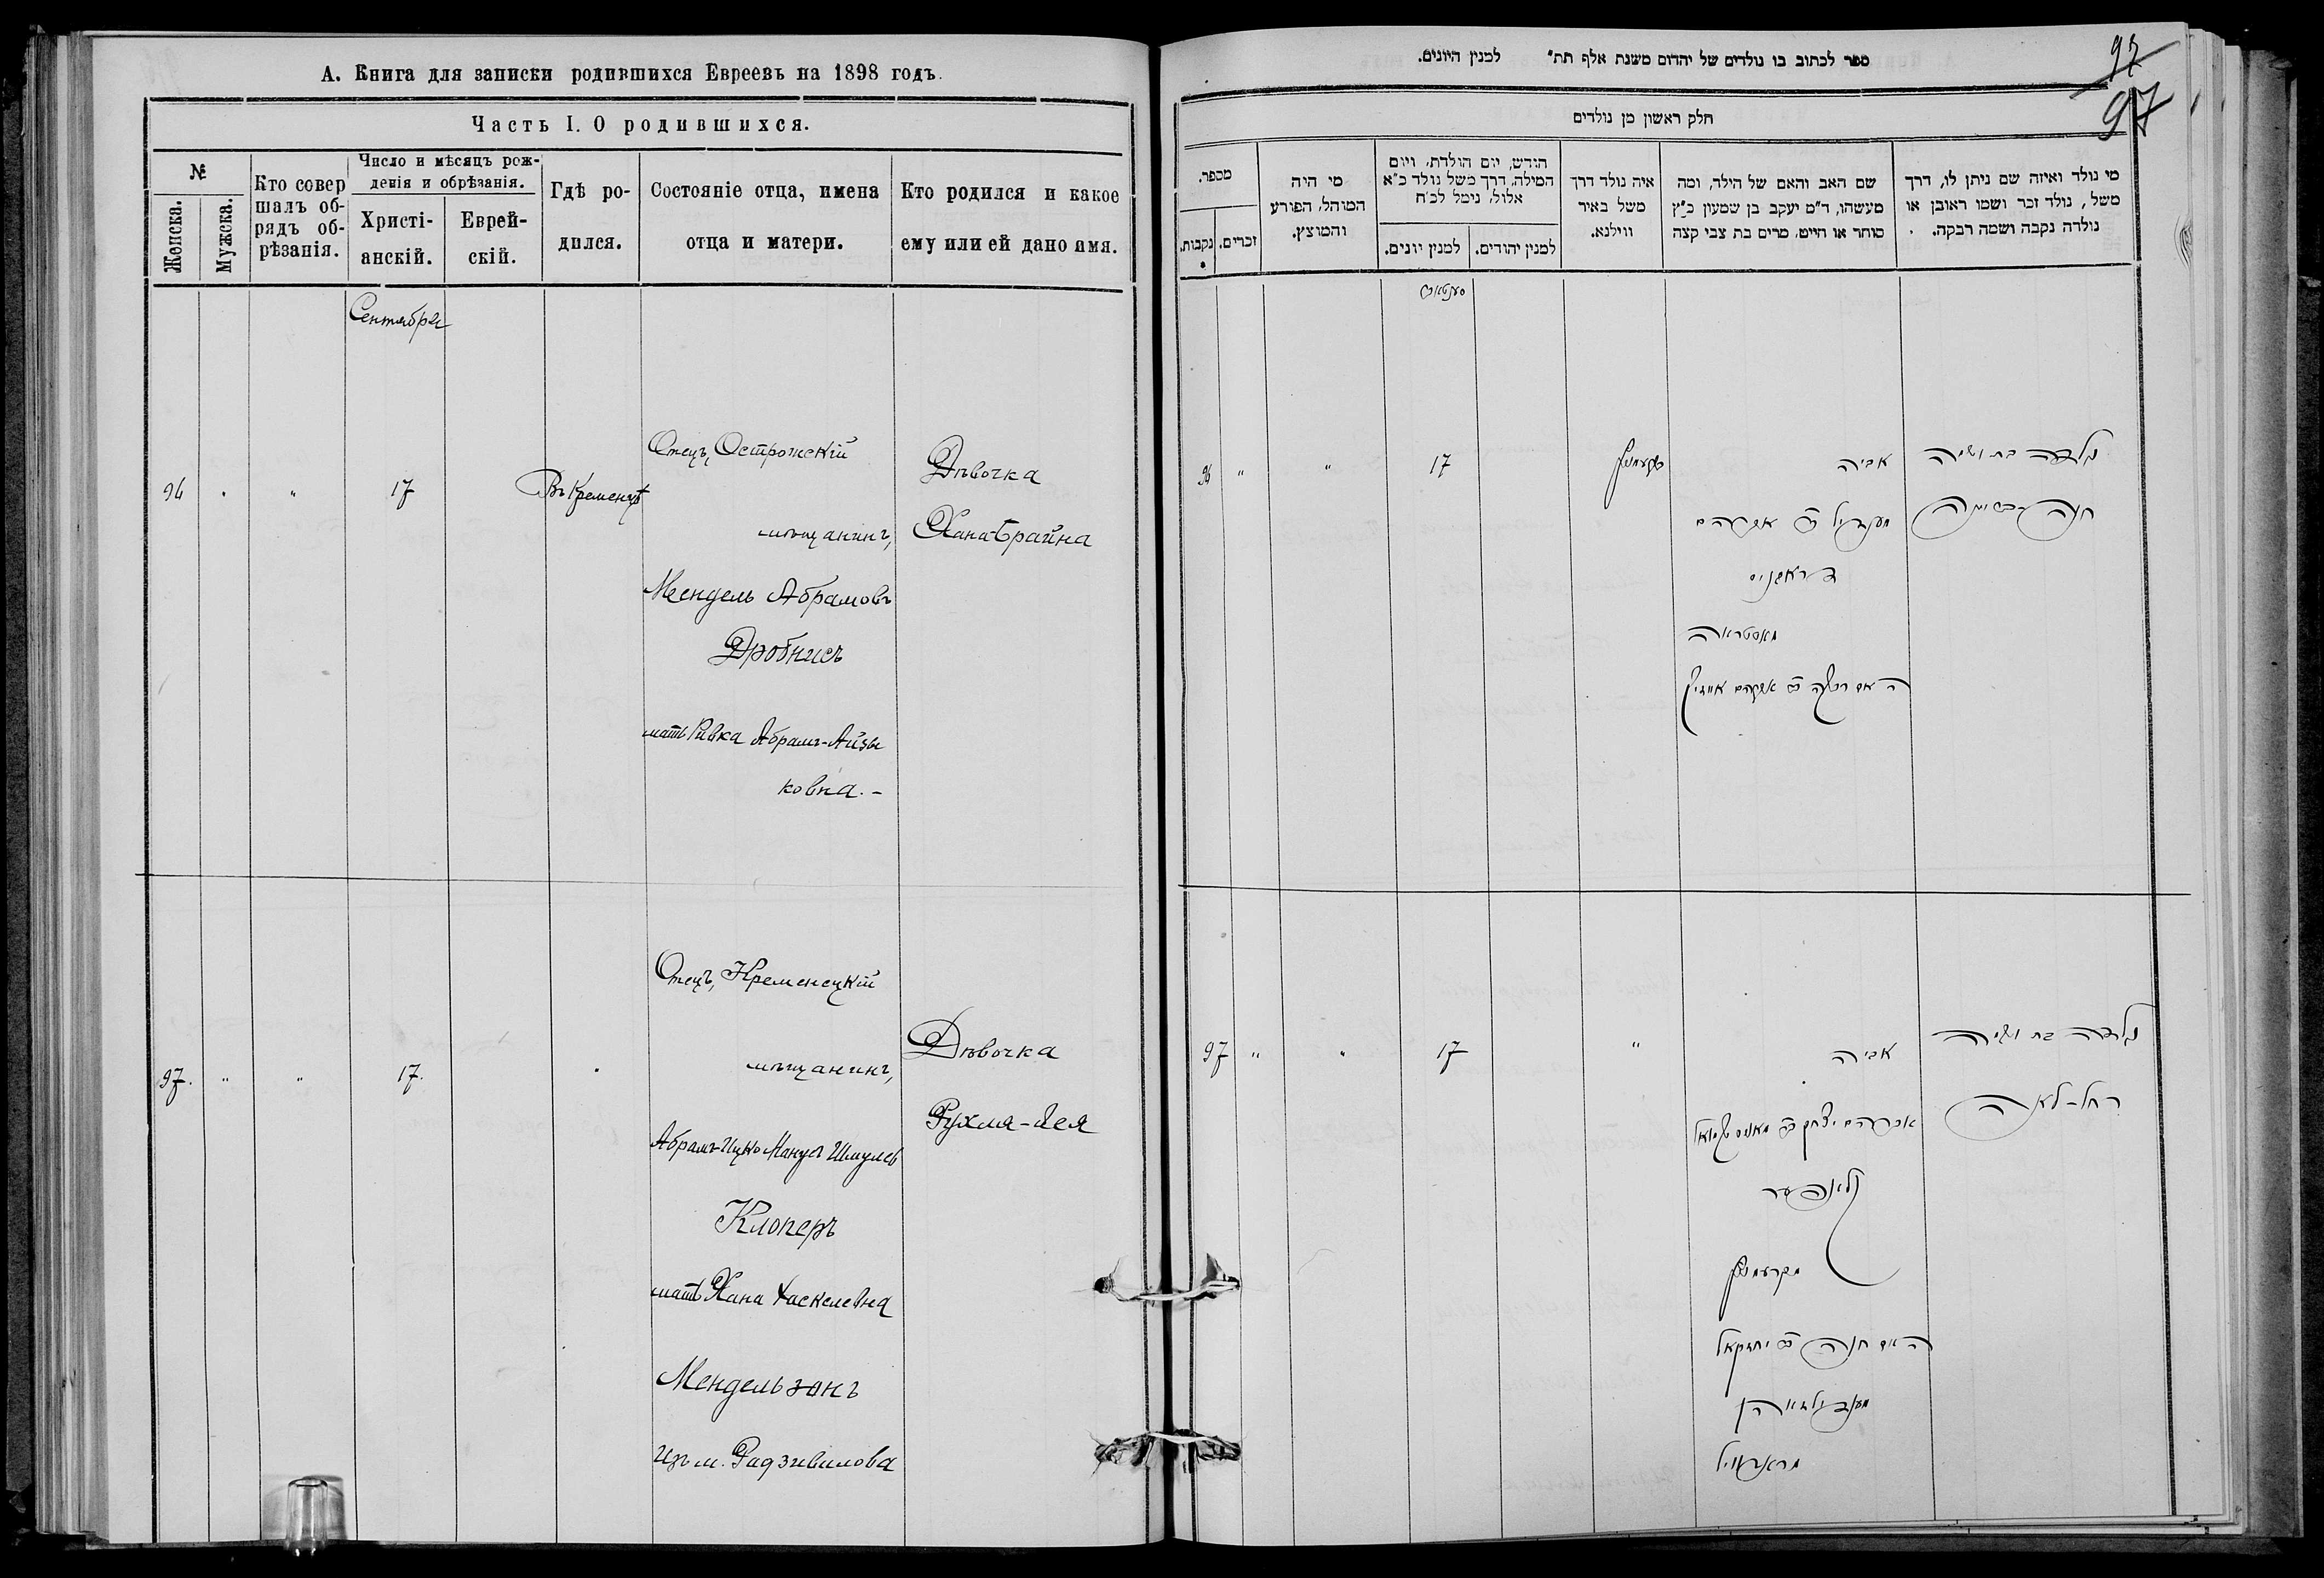 А. Книга для записки родившихся Евреевъ на 1898 годъ.
Часть I. О родившихся.
№
Женска.
Мужска.
Кто совер
шалъ об-
рядъ об-
рѣзанія.
Число и мѣсяцъ рож-
денія и обрѣзанія.
Христі-
анскій.
Еврей-
скій.
Гдѣ ро-
дился.
Состояніе отца, имена
отца и матери.
Кто родился и какое
ему или ей дано имя.
Сентября
96
"
"
17
Въ Кременцѣ
Отецъ, Острожскій
мѣщанинъ,
Мендель Абрамовъ
Дробнисъ
мать Ривка Абрамъ-Айзы
ковна.-
Дѣвочка
Хана-Брайна
97.
"
"
17.
"
Отецъ, Кременецкій
мѣщанинъ,
Абрамъ-Ицко Манусъ Шмулев
Клоперъ
мать Хана Хаскелевна
Мендельзонъ
изъ м. Радзивилова
Дѣвочка
Рухля-Лея
ספר לכתוב בו נולדים של יהדום משנת אלף תת" למנין היונים.
97
97
חלק ראשון מן נולדים
מספר.
נקבות.
זכרים.
מי היה
המוהל, הפורע
והמוצץ.
חודש, יום הולדת, ויום
המילה, דרך משל נולד כ"א
אלול, נימל לכ"ח
למנין יונים.
למנין יהודים.
איה נולד דרך
משל באיר
ווילנא.
שם האב והאם של הילד, ומה
מעשהו, ד"מ יעקב בן שמעון כ"ץ
סוחר או הייט, מרים בת צבי קצה
מי נולד ואיזה שם ניתן לו, דרך
משל, נולד זכר ושמו ראובן או
נולדה נקבה ושמה רבקה.
96
"
"
17
נולדה בת ושמה
חנה-בריינה
אביה
מענדיל ב"ר אברהם
דראבניס
האם רבקה ב"ר אברהם אייזיק
97
"
"
17
"
נולדה בת ושמה
רחל-לאה
אביה
אברהם יצחק ב"ר מאניס שמואל
קלאפער
מקרעמניץ
האם חנה ב"ר יחזקאל
מענדילזאהן
מראדזוויל